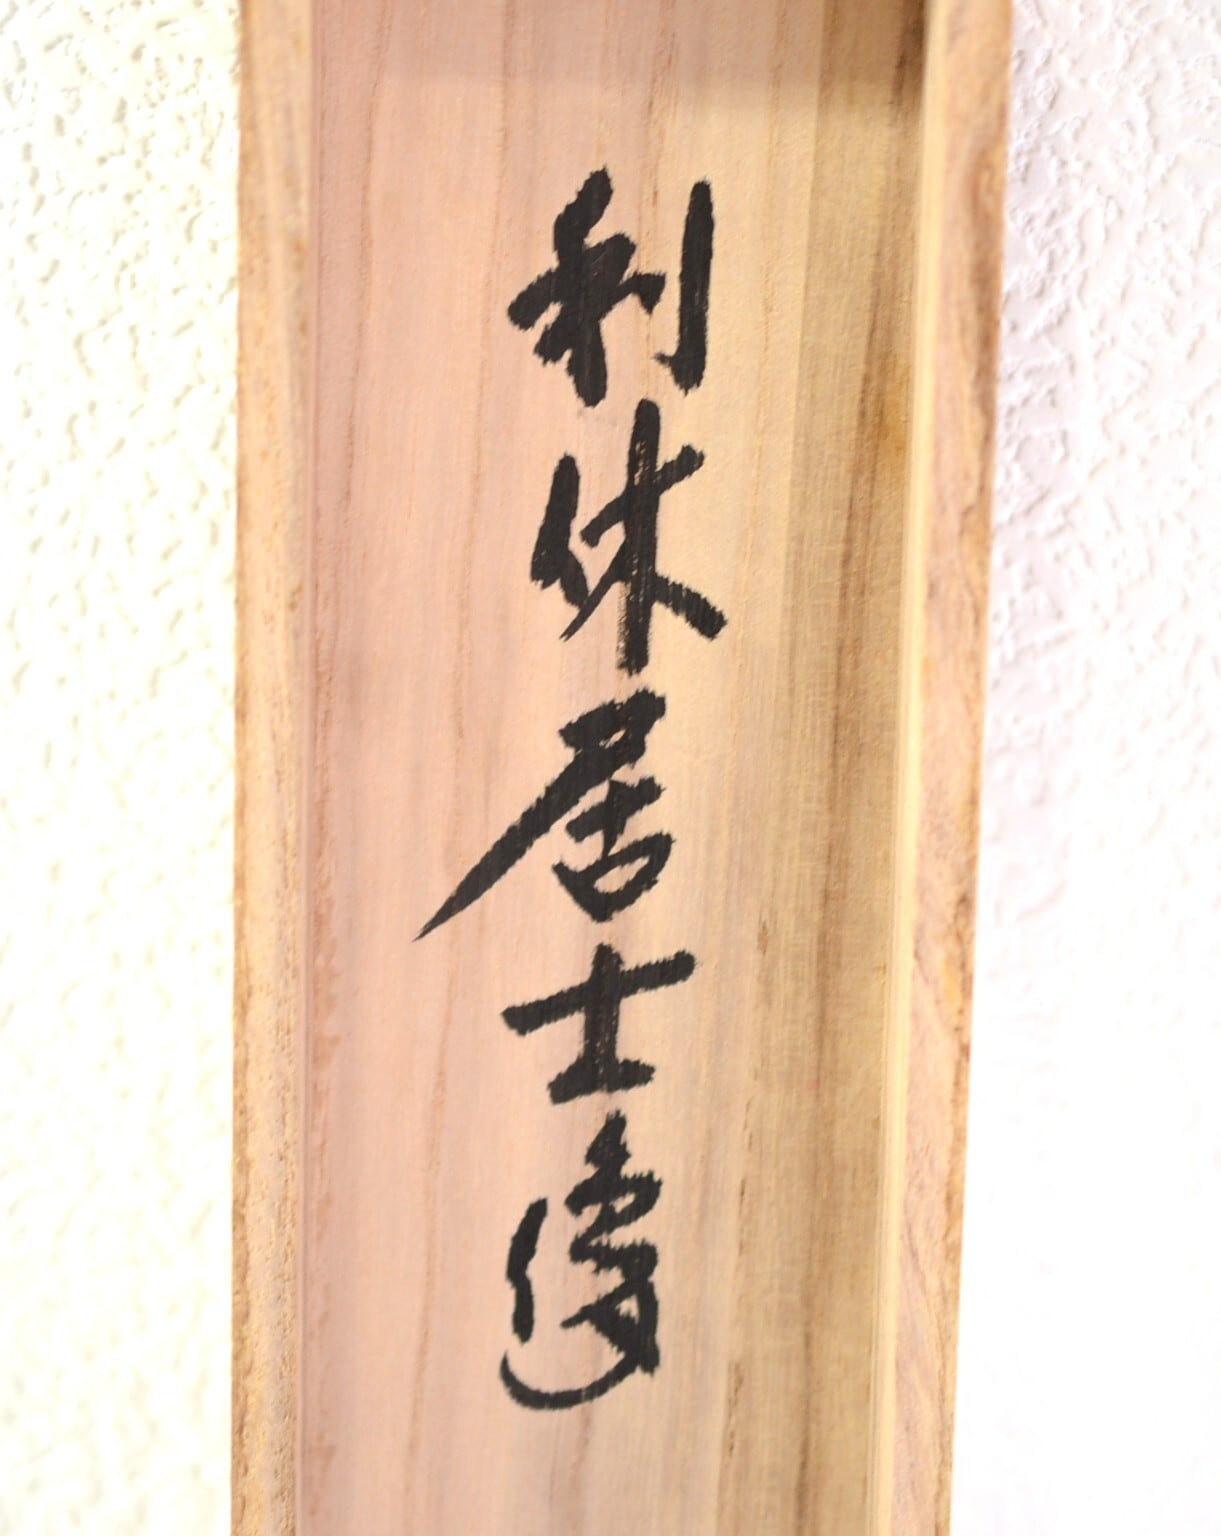 利休居士像